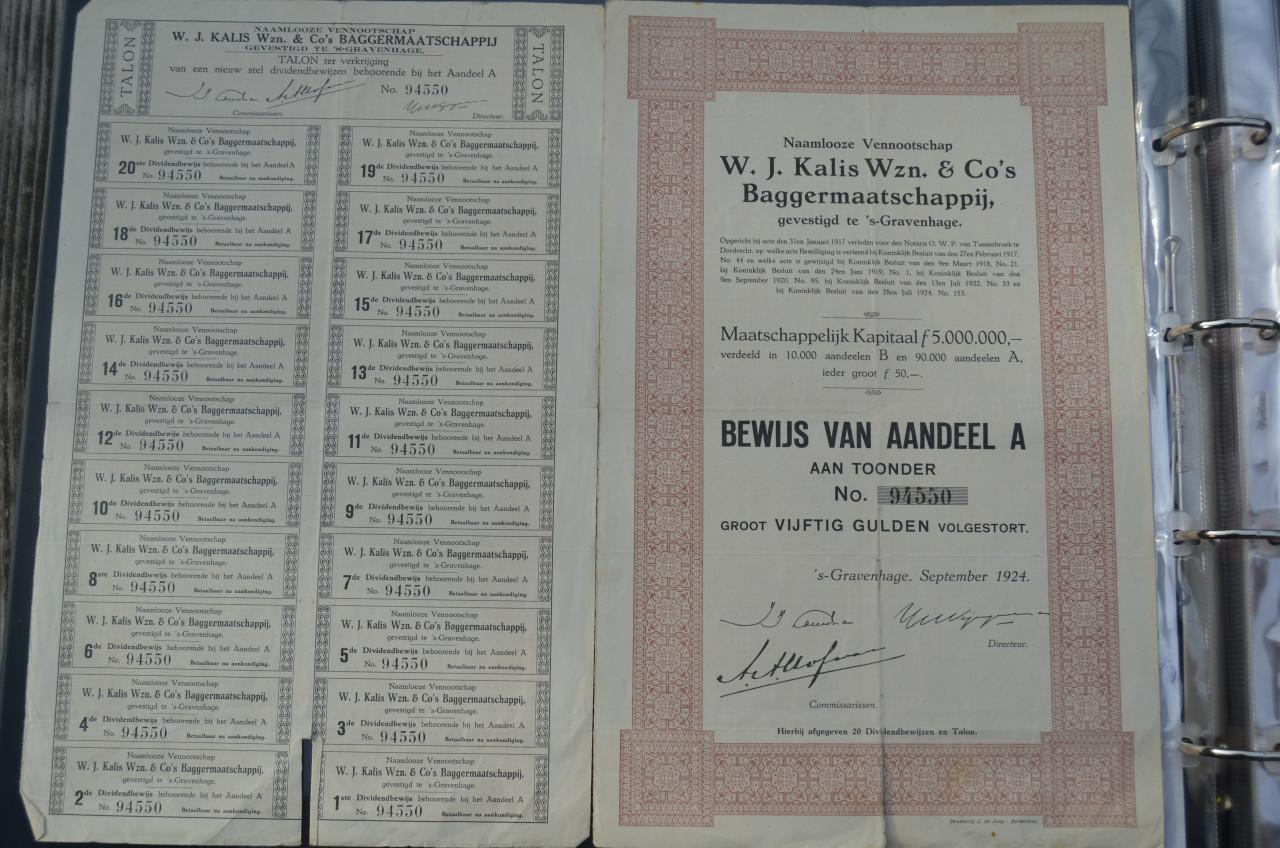 TALON
NAAMLOOZE VENNOOTSCHAP
W. J. KALIS Wzn. & Co's BAGGERMAATSCHAPPIJ
GEVESTIGD TE 'S-GRAVENHAGE.
TALON ter verkrijging
van een nieuw stel dividendbewijzen behoorende bij het Aandeel A
No. 94550
Commissarissen.
Directeur.
TALON
Naamlooze Vennootschap
W. J. Kalis Wzn. & Co's Baggermaatschappij,
gevestigd te 's-Gravenhage.
20ste Dividendbewijs behoorende bij het Aandeel A
No. 94550 Betaalbaar na aankondiging.
Naamlooze Vennootschap
W. J. Kalis Wzn. & Co's Baggermaatschappij,
gevestigd te 's-Gravenhage.
19de Dividendbewijs behoorende bij het Aandeel A
No. 94550 Betaalbaar na aankondiging.
Naamlooze Vennootschap
W. J. Kalis Wzn. & Co's Baggermaatschappij,
gevestigd te 's-Gravenhage.
18de Dividendbewijs behoorende bij het Aandeel A
No. 94550 Betaalbaar na aankondiging.
Naamlooze Vennootschap
W. J. Kalis Wzn. & Co's Baggermaatschappij,
gevestigd te 's-Gravenhage.
17de Dividendbewijs behoorende bij het Aandeel A
No. 94550 Betaalbaar na aankondiging.
Naamlooze Vennootschap
W. J. Kalis Wzn. & Co's Baggermaatschappij,
gevestigd te 's-Gravenhage.
16de Dividendbewijs behoorende bij het Aandeel A
No. 94550 Betaalbaar na aankondiging.
Naamlooze Vennootschap
W. J. Kalis Wzn. & Co's Baggermaatschappij,
gevestigd te 's-Gravenhage.
15de Dividendbewijs behoorende bij het Aandeel A
No. 94550 Betaalbaar na aankondiging.
Naamlooze Vennootschap
W. J. Kalis Wzn. & Co's Baggermaatschappij,
gevestigd te 's-Gravenhage.
14de Dividendbewijs behoorende bij het Aandeel A
No. 94550 Betaalbaar na aankondiging.
Naamlooze Vennootschap
W. J. Kalis Wzn. & Co's Baggermaatschappij,
gevestigd te 's-Gravenhage.
13de Dividendbewijs behoorende bij het Aandeel A
No. 94550 Betaalbaar na aankondiging.
Naamlooze Vennootschap
W. J. Kalis Wzn. & Co's Baggermaatschappij,
gevestigd te 's-Gravenhage.
12de Dividendbewijs behoorende bij het Aandeel A
No. 94550 Betaalbaar na aankondiging.
Naamlooze Vennootschap
W. J. Kalis Wzn. & Co's Baggermaatschappij,
gevestigd te 's-Gravenhage.
11de Dividendbewijs behoorende bij het Aandeel A
No. 94550 Betaalbaar na aankondiging.
Naamlooze Vennootschap
W. J. Kalis Wzn. & Co's Baggermaatschappij,
gevestigd te 's-Gravenhage.
10de Dividendbewijs behoorende bij het Aandeel A
No. 94550 Betaalbaar na aankondiging.
Naamlooze Vennootschap
W. J. Kalis Wzn. & Co's Baggermaatschappij,
gevestigd te 's-Gravenhage.
9de Dividendbewijs behoorende bij het Aandeel A
No. 94550 Betaalbaar na aankondiging.
Naamlooze Vennootschap
W. J. Kalis Wzn. & Co's Baggermaatschappij,
gevestigd te 's-Gravenhage.
8ste Dividendbewijs behoorende bij het Aandeel A
No. 94550 Betaalbaar na aankondiging.
Naamlooze Vennootschap
W. J. Kalis Wzn. & Co's Baggermaatschappij,
gevestigd te 's-Gravenhage.
7de Dividendbewijs behoorende bij het Aandeel A
No. 94550 Betaalbaar na aankondiging.
Naamlooze Vennootschap
W. J. Kalis Wzn. & Co's Baggermaatschappij,
gevestigd te 's-Gravenhage.
6de Dividendbewijs behoorende bij het Aandeel A
No. 94550 Betaalbaar na aankondiging.
Naamlooze Vennootschap
W. J. Kalis Wzn. & Co's Baggermaatschappij,
gevestigd te 's-Gravenhage.
5de Dividendbewijs behoorende bij het Aandeel A
No. 94550 Betaalbaar na aankondiging.
Naamlooze Vennootschap
W. J. Kalis Wzn. & Co's Baggermaatschappij,
gevestigd te 's-Gravenhage.
4de Dividendbewijs behoorende bij het Aandeel A
No. 94550 Betaalbaar na aankondiging.
Naamlooze Vennootschap
W. J. Kalis Wzn. & Co's Baggermaatschappij,
gevestigd te 's-Gravenhage.
3de Dividendbewijs behoorende bij het Aandeel A
No. 94550 Betaalbaar na aankondiging.
Naamlooze Vennootschap
W. J. Kalis Wzn. & Co's Baggermaatschappij,
gevestigd te 's-Gravenhage.
2de Dividendbewijs behoorende bij het Aandeel A
No. 94550 Betaalbaar na aankondiging.
Naamlooze Vennootschap
W. J. Kalis Wzn. & Co's Baggermaatschappij,
gevestigd te 's-Gravenhage.
1ste Dividendbewijs behoorende bij het Aandeel A
No. 94550 Betaalbaar na aankondiging.
Naamlooze Vennootschap
W. J. Kalis Wzn. & Co's
Baggermaatschappij,
gevestigd te 's-Gravenhage.
Opgericht bij acte den 31en Januari 1917 verleden voor den Notaris O. W. P. van Tussenbroek te
Dordrecht, op welke acte Bewilliging is verleend bij Koninklijk Besluit van den 27en Februari 1917,
No. 44 en welke acte is gewijzigd bij Koninklijk Besluit van den 9en Maart 1918, No. 21,
bij Koninklijk Besluit van den 24en Juni 1919, No. 1, bij Koninklijk Besluit van den
9en September 1920, No. 95, bij Koninklijk Besluit van den 13en Juli 1922, No. 33 en
bij Koninklijk Besluit van den 28en Juli 1924, No. 153.
Maatschappelijk Kapitaal ƒ 5.000.000,—
verdeeld in 10.000 aandeelen B en 90.000 aandeelen A,
ieder groot ƒ 50.—.
BEWIJS VAN AANDEEL A
AAN TOONDER
No. 94550
GROOT VIJFTIG GULDEN VOLGESTORT.
's-Gravenhage, September 1924.
Directeur.
Commissarissen.
Hierbij afgegeven 20 Dividendbewijzen en Talon.
Drukkerij J. de Jong - Rotterdam.